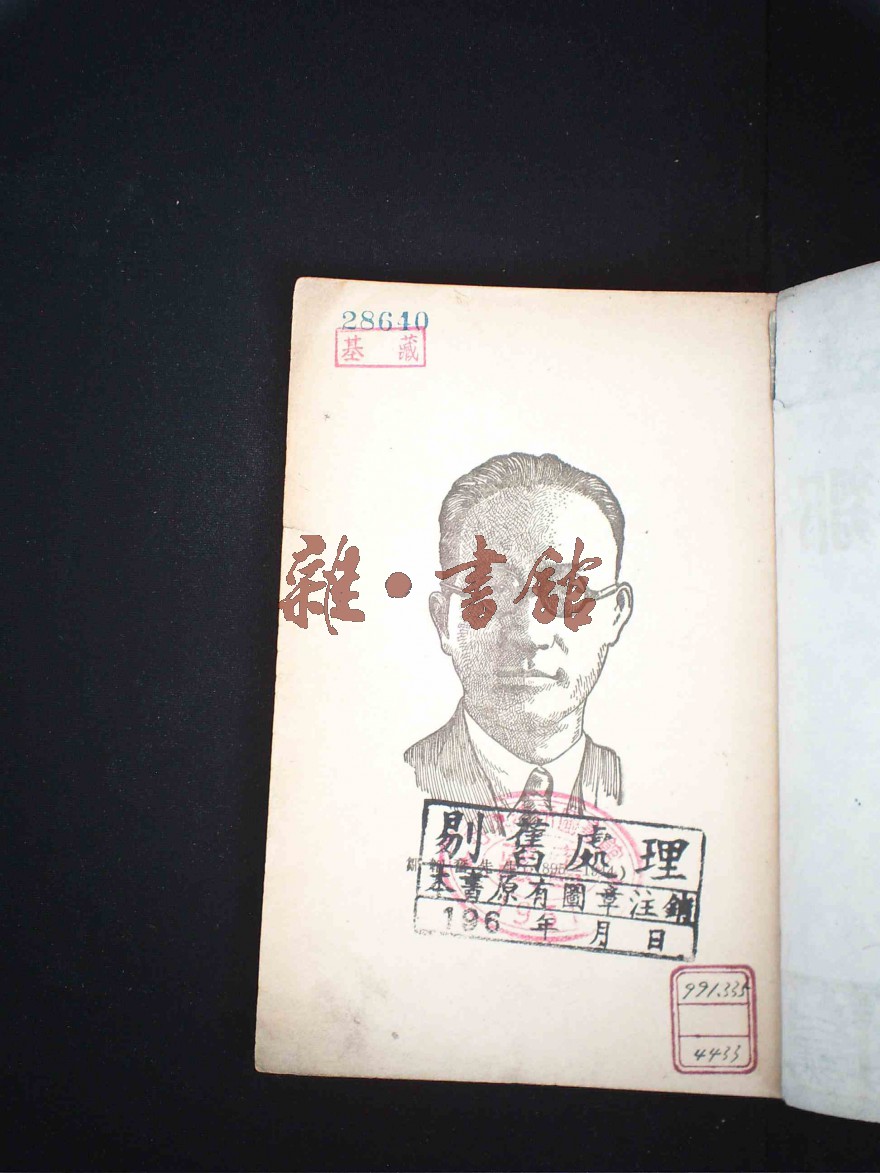 28640
基藏
雜·書館
剔舊處理
本書原有圖章注銷
196 年 月 日
991.335
4433